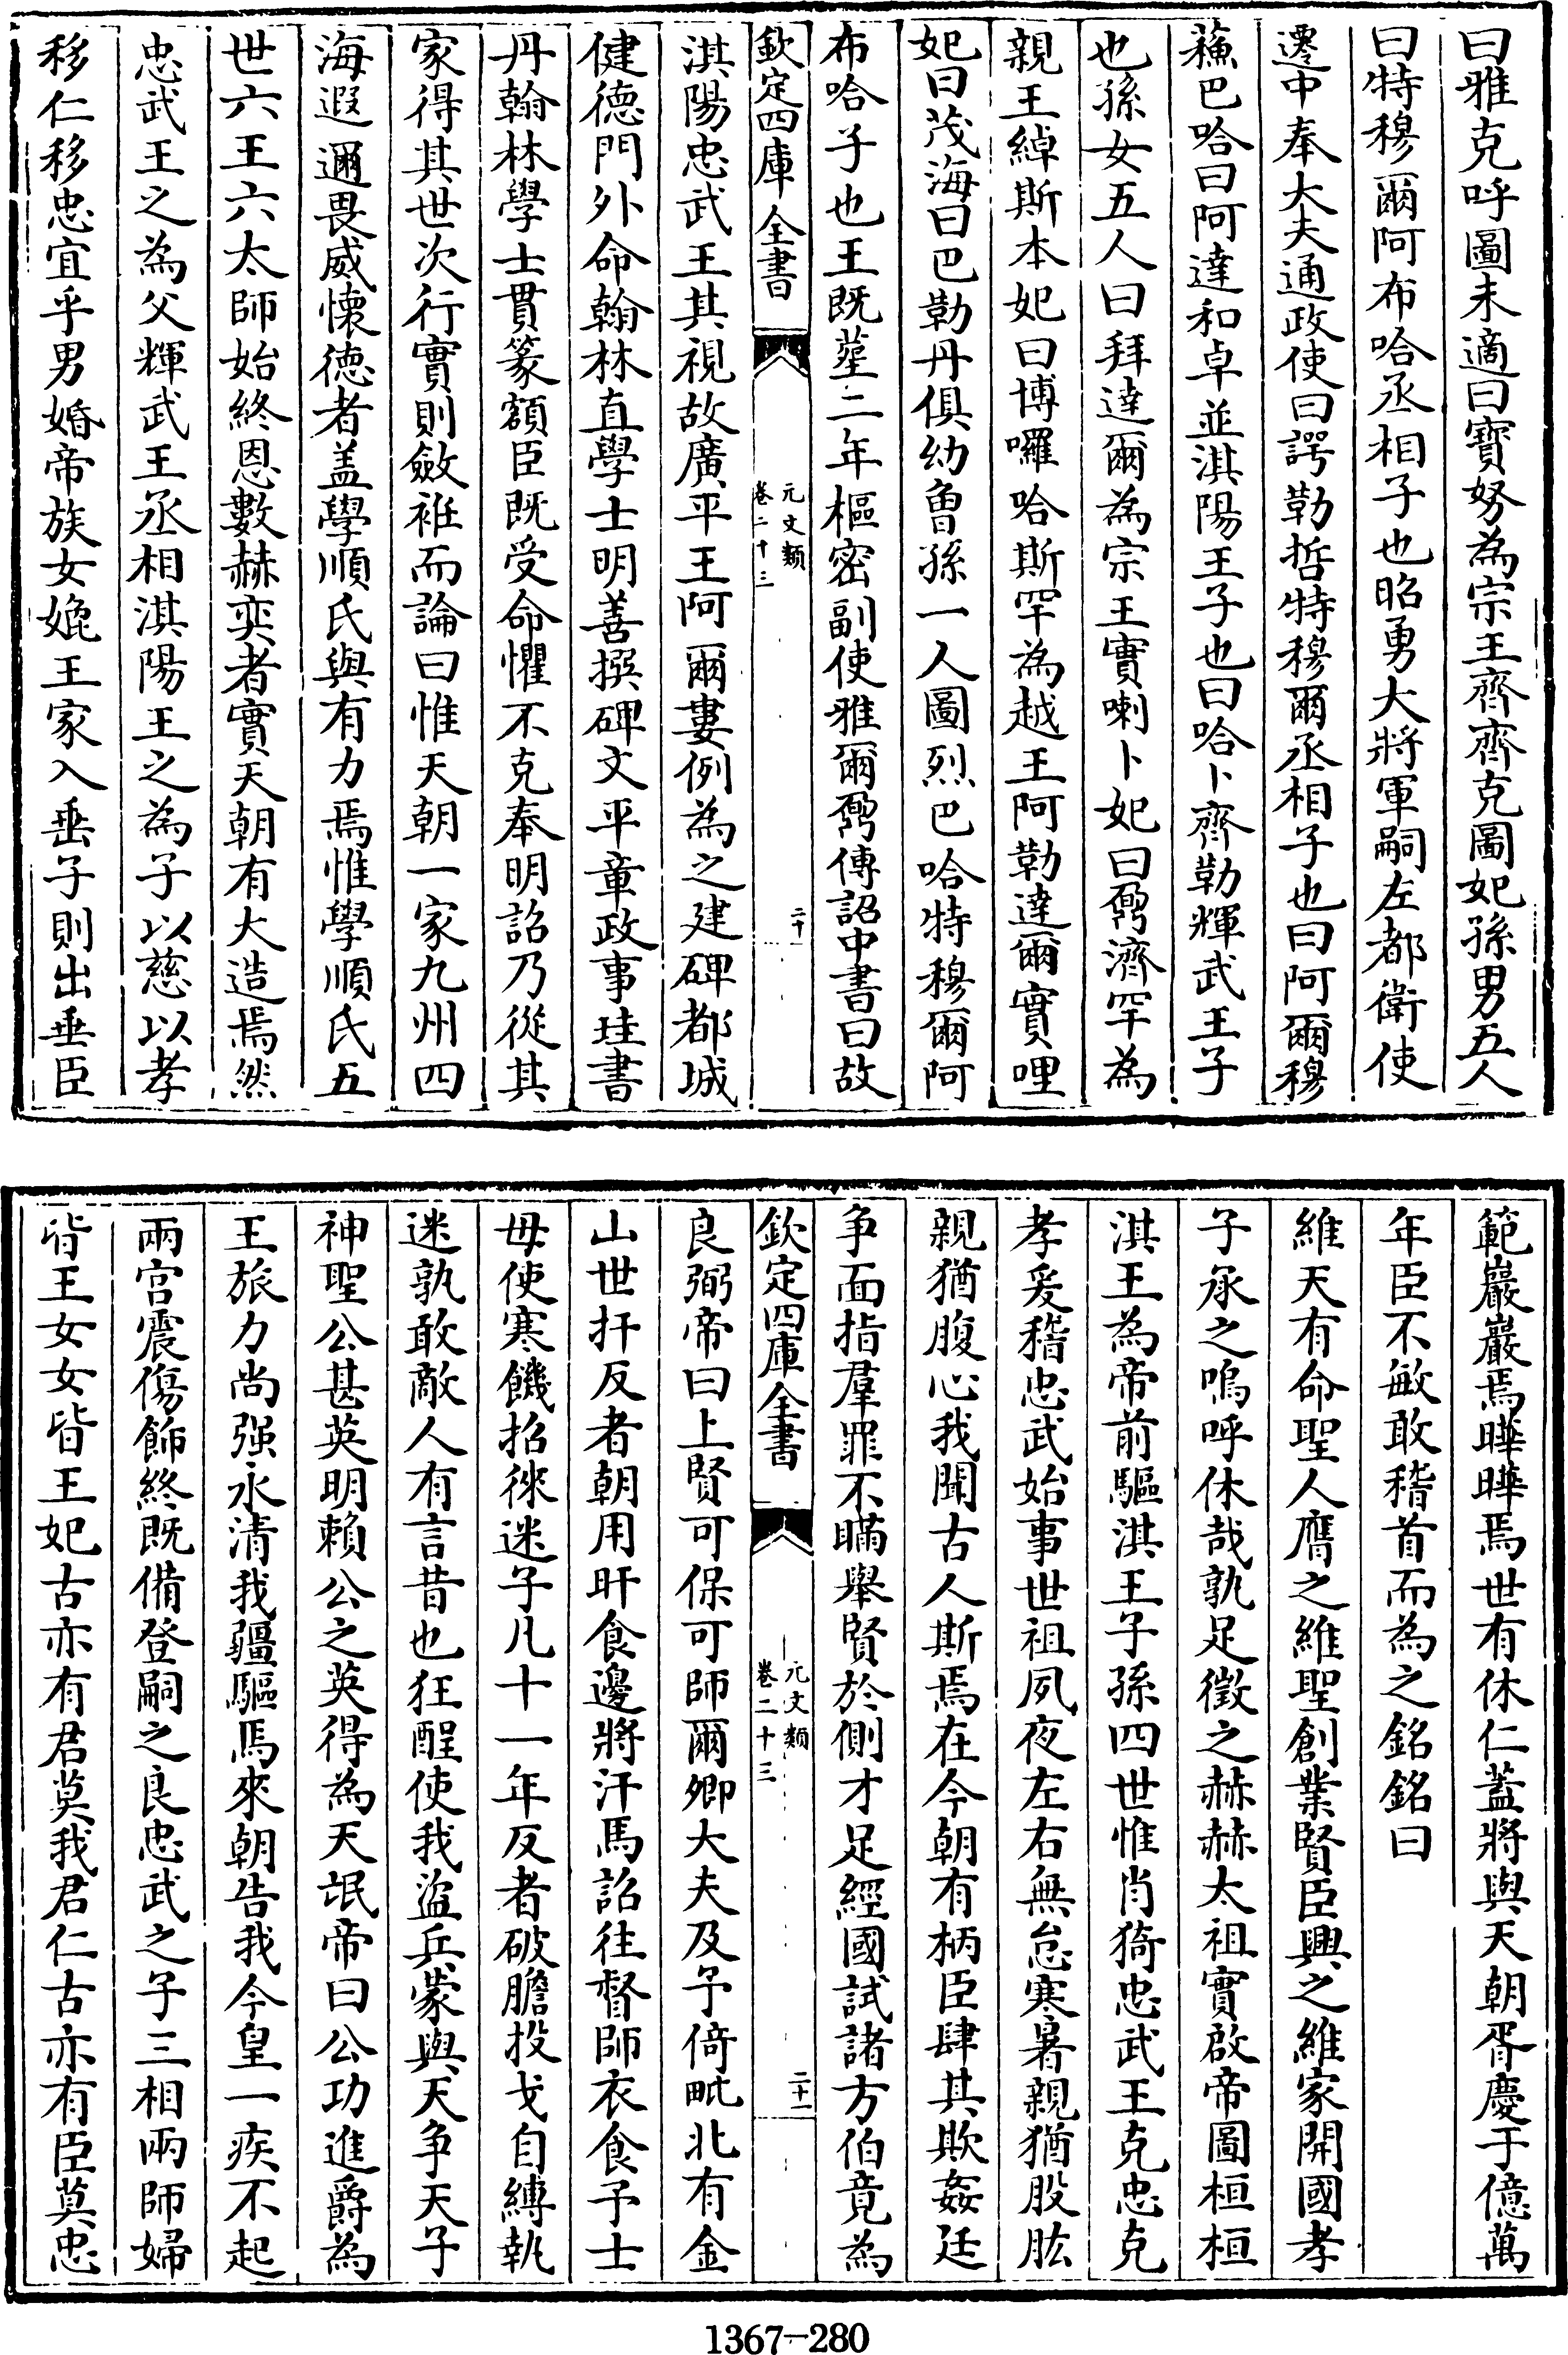 曰雅克呼圖未適曰寳努為宗王齊齊克圖妃孫男五人
曰特穆爾阿布哈丞相子也昭勇大將軍嗣左都衛使
遷中奉大夫通政使曰諤勒哲特穆爾丞相子也曰阿爾穆
蘓巴哈曰阿達和卓並淇陽王子也曰哈卜齊勒輝武王子
也孫女五人曰拜達爾為宗王實喇卜妃曰鼐濟罕為
親王綽斯本妃曰博囉哈斯罕為越王阿勒達爾實哩
妃曰茂海曰巴勒丹俱幼魯孫一人圖烈巴哈特穆爾阿
布哈子也王既塟二年樞密副使雅爾鼐傳詔中書曰故
欽定四庫全書
元文類
卷二十三
二十
淇陽忠武王其視故廣平王阿爾婁例為之建碑都城
健德門外命翰林直學士明善撰碑文平章政事珪書
丹翰林學士貫篆額臣既受命懼不克奉明詔乃從其
家得其世次行實則斂袵而論曰惟天朝一家九州四
海遐邇畏威懐德者盖學順氏與有力焉惟學順氏五
世六王六太師始終恩數赫奕者實天朝有大造焉然
忠武王之為父輝武王丞相淇陽王之為子以慈以孝
移仁移忠宜乎男婚帝族女媲王家入垂子則出垂臣
範巖巖焉曄曄焉世有休仁蓋將與天朝胥慶于億萬
年臣不敏敢稽首而為之銘銘曰
維天有命聖人膺之維聖創業賢臣興之維家開國孝
子承之嗚呼休哉孰足徵之赫赫太祖實啟帝圖桓桓
淇王為帝前驅淇王子孫四世惟肖猗忠武王克忠克
孝爰稽忠武始事世祖夙夜左右無怠寒暑親猶股肱
親猶腹心我聞古人斯焉在今朝有柄臣肆其欺姦廷
争面指羣罪不瞞舉賢於側才足經國試諸方伯竟為
欽定四庫全書
元文類
卷二十三
二十一
良弼帝曰上賢可保可師爾卿大夫及予倚毗北有金
山世扞反者朝用旰食邊將汗馬詔往督師衣食予士
毋使寒饑招徠迷子凡十一年反者破膽投戈自縛執
迷孰敢敵人有言昔也狂酲使我盜兵蒙與天争天子
神聖公甚英明賴公之英得為天氓帝曰公功進爵為
王旅力尚强永清我疆驅馬來朝告我今皇一疾不起
兩宫震傷飾終既備登嗣之良忠武之子三相兩師婦
皆王女女皆王妃古亦有君莫我君仁古亦有臣莫忠
1367-280